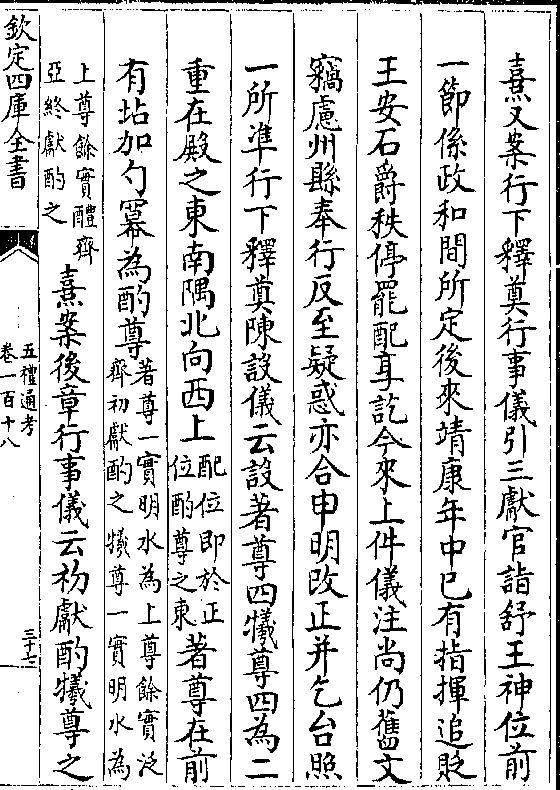 熹又案行下釋奠行事儀引三獻官詣舒王神位前
一節係政和間所定後來靖康年中已有指揮追貶
王安石爵秩停罷配享訖今來上件儀注尚仍舊文
竊慮州縣奉行反至疑惑亦合申明改正并乞台照
一所準行下釋奠陳設儀云設著尊四犧尊四為二
重在殿之東南隅北向西上配位即於正位酌尊之東著尊在前
有坫加勺冪為酌尊著尊一實明水為上尊餘實泛齊初獻酌之犧尊一實明水為
上尊餘實醴齊亞終獻酌之熹案後章行事儀云初獻酌犧尊之
欽定四庫全書
五禮通考
卷一百十八
三十七